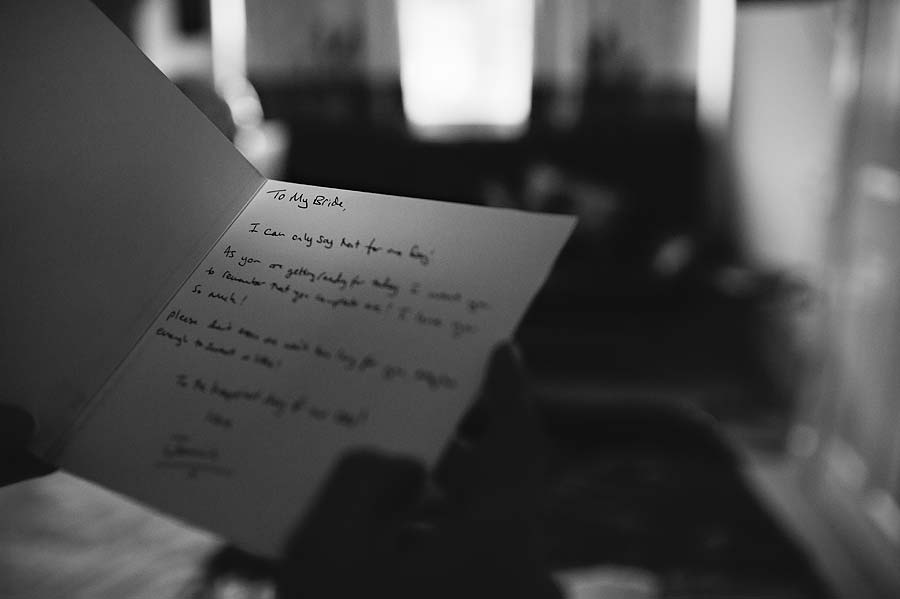 To My Bride,
I can only say not for me long!
As you are getting ready for today I want you
to remember that you complete me! I love you
so much!
please don't me wait too long for you,
enough to
To the happiest day of our lives!